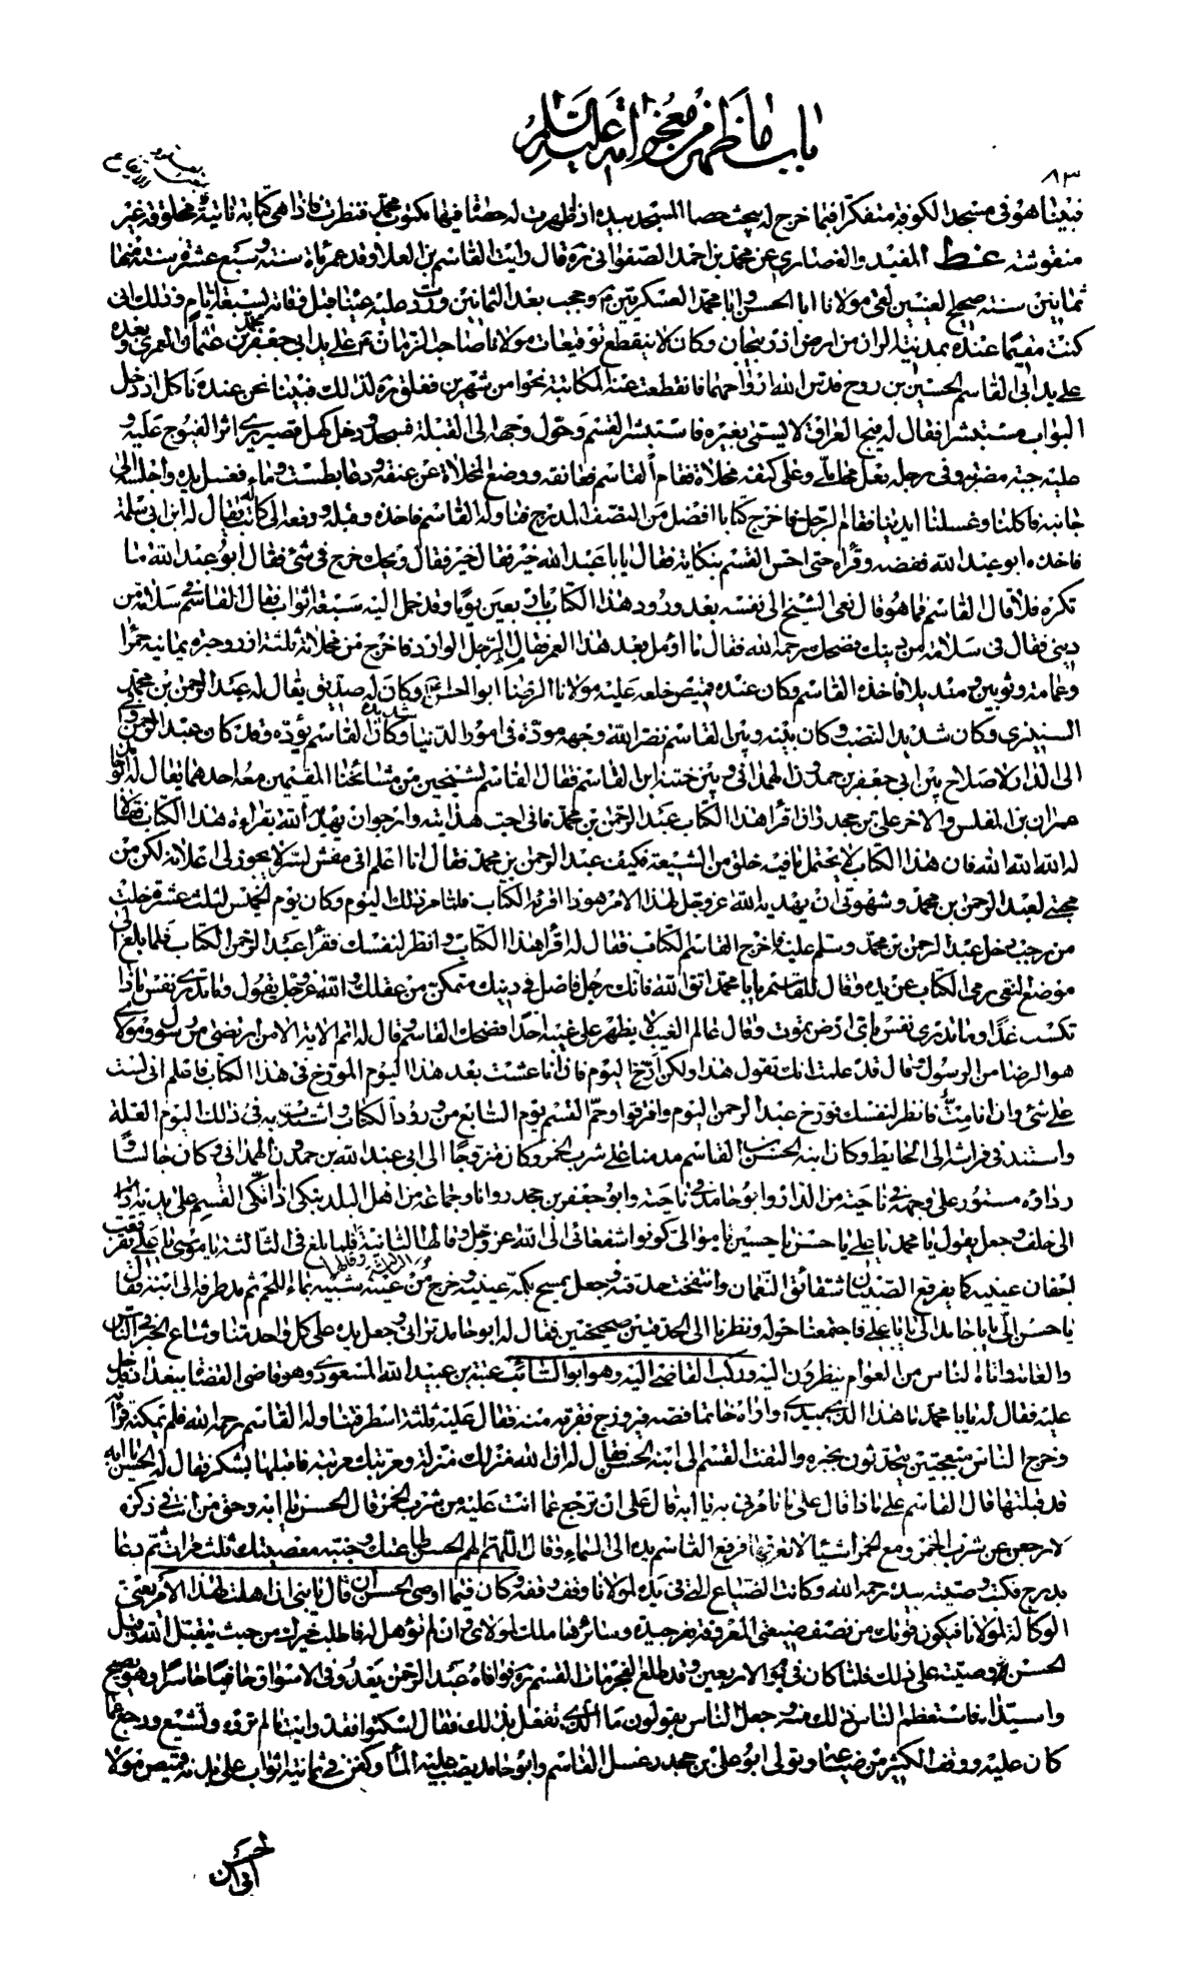 باب ما ظهر من معجزاته عليه السلام
٨٣
فبينا هو في مسجد الكوفة متفكرا فيما خرج له يبحث حصا المسجد بيده اذ ظهرت له حصاة فيها مكتوب محمد فنظرت فاذا هي كتابة ناتية مخلوقة غير
منقوشة غط المفيد والغضايري عن محمد بن احمد الصفواني ره قال رايت القاسم بن العلا وقد عمر مأة سنة وسبع عشرة سنة منها
ثمانين سنة صحيح العينين لقي مولانا ابا الحسن وابا محمد العسكريين ع وحجب بعد الثمانين وردت عليه عيناه قبل وفاته بسبعة ايام وذلك اني
كنت مقيما عنده بمدينة الران من ارض اذربيجان وكان لا ينقطع توقيعات مولانا صاحب الزمان ع على يد ابي جعفر محمد بن عثمان العمري وبعده
على يد ابي القاسم الحسين بن روح قدس الله ارواحهما فانقطعت عنه المكاتبة نحوا من شهرين فغلق ره لذلك فبينا نحن عنده ناكل اذ دخل
البواب مستبشرا فقال له فيج العراق لا يسمى بغيره فاستبشر القسم وحول وجهه الى القبلة فسجد ودخل كهل قصير يرى اثر الفيوج عليه و
عليه جبة مضربة وفي رجله نعل محاملي وعلى كتفه مخلاة فقام القاسم فعانقه ووضع المخلاة عن عنقه ودعا بطست وماء فغسل يده واجلسه الى
جانبه فاكلنا وغسلنا ايدينا فقام الرجل فاخرج كتابا افضل من النصف المدرج فناوله القاسم فاخذه وقبله ودفعه الى كاتب له يقال له ابن ابي سلمة
فاخذه ابو عبد الله ففضه وقرأه حتى احس القسم بنكاية فقال يابا عبد الله خير فقال خير فقال ويحك خرج في شئ فقال ابو عبد الله ما
تكره فلا قال القاسم فما هو قال نعي الشيخ الى نفسه بعد ورود هذا الكتاب باربعين يوما وقد حمل اليه سبعة اثواب فقال القاسم في سلامة من
ديني فقال في سلامة من دينك فضحك رحمه الله فقال ما اومل بعد هذا العمر فقال الرجل الوارد فاخرج من مخلاته ثلثة ازر وحبرة يمانية حمراء
وعمامة وثوبين ومنديلا فاخذه القاسم وكان عنده قميص خلعه عليه مولانا الرضا ابو الحسن ع وكان له صديق يقال له عبد الرحمن بن محمد
السنيزي وكان شديد النصب وكان بينه وبين القاسم نضر الله وجهه مودة في امور الدنيا شديدة وكان القاسم يوده وقد كان عبد الرحمن وافى
الى الدار لاصلاح بين ابي جعفر بن حمدون الهمداني وبين ختنه ابن القاسم فقال القاسم لشيخين من مشائخنا المقيمين معه احدهما يقال له ابو حامد
عمران بن المفلس والاخر علي بن جحدر ان اقرءا هذا الكتاب عبد الرحمن بن محمد فاني احب هدايته وارجو ان يهديه الله بقراءة هذا الكتاب فقالا
له الله الله الله فان هذا الكتاب لا يحتمل ما فيه خلق من الشيعة فكيف عبد الرحمن بن محمد فقال انا اعلم اني مفش لسر لا يجوز لي اعلانه لكن من
محبتي لعبد الرحمن بن محمد وشهوتي ان يهديه الله عز وجل لهذا الامر هو ذا اقرئه الكتاب فلما مر ذلك اليوم وكان يوم الخميس لثلث عشرة خلت
من رجب دخل عبد الرحمن بن محمد وسلم عليه فاخرج القاسم الكتاب فقال له اقرأ هذا الكتاب وانظر لنفسك فقرأ عبد الرحمن الكتاب فلما بلغ الى
موضع النعي رمى الكتاب عن يده وقال للقاسم يابا محمد اتق الله فانك رجل فاضل في دينك متمكن من عقلك والله عز وجل يقول وما تدري نفس ماذا
تكسب غدا وما تدري نفس باي ارض تموت وقال عالم الغيب لا يظهر على غيبه احدا فضحك القاسم وقال له اتم الاية الا من ارتضى من رسول ومولاي
هو الرضا من الرسول وقال قد علمت انك تقول هذا ولكن ارخ اليوم فان انا عشت بعد هذا اليوم المورخ في هذا الكتاب فاعلم اني لست
على شئ وان انا مت فانظر لنفسك فورخ عبد الرحمن اليوم وافترقوا وحم القسم يوم السابع من ورود الكتاب واشتدت به في ذلك اليوم العلة
واستند في فراشه الى الحايط وكان ابنه الحسن بن القاسم مدمنا على شرب الخمر وكان متزوجا الى ابي عبد الله بن حمدون الهمداني وكان جالسا و
رداؤه مستور على وجهه في ناحية من الدار وابو حامد في ناحية وابو جعفر بن جحدر وانا وجماعة من اهل البلد نبكي اذ اتكى القسم على يديه
الى خلف وجعل يقول يا محمد يا علي يا حسن يا حسين يا موالي كونوا شفعائي الى الله عز وجل وقالها الثانية وقالها الثالثة فلما بلغ في الثالثة يا موسى يا علي تفرقعت
اجفان عينيه كما يفرقع الصبيان شقائق النعمان وانتفخت حدقته وجعل يمسح بكمه عينيه وخرج من عينيه شبيه بماء اللحم ثم مد طرفه الى ابنه فقال
يا حسن الي يابا حامد الي يابا علي فاجتمعنا حوله ونظرنا الى الحدقتين صحيحتين فقال له ابو حامد تراني وجعل يده على كل واحد منا وشاع الخبر في الناس
والعامة واتاه الناس من العوام ينظرون اليه وركب القاضي اليه وهو ابو السائب عتبة بن عبيد الله المسعودي وهو قاضي القضاة ببغداد فدخل
عليه فقال له يابا محمد ما هذا الذي بيدي واراه خاتما فصه فيروزج فقربه منه فقال عليه ثلثة اسطر فتناوله القاسم رحمه الله فلم يمكنه قرائته
وخرج الناس متعجبين يتحدثون بخبره والتفت القسم الى ابنه الحسن فقال له ان الله منزلك منزلة ومرتبك مرتبة فاقبلها بشكر فقال له الحسن يا ابه
قد قبلتها قال القاسم على ماذا قال على ما تامرني به يا ابه قال على ان ترجع عما انت عليه من شرب الخمر قال الحسن يا ابه وحق من انت في ذكره
لارجعن عن شرب الخمر ومع الخمر اشياء لا تعرفها فرفع القاسم يده الى السماء وقال اللهم الهم الحسن طاعتك وجنبه معصيتك ثلث مرات ثم دعا
بدرج فكتب وصيته بيده رحمه الله وكانت الضياع التي في يده لمولانا وقف وقفه وكان فيما اوصى الحسن ان قال يا بني ان اهلت لهذا الامر يعني
الوكالة لمولانا فيكون قوتك من نصف ضيعتي المعروفة بفرجيدة وسائرها ملك لمولاي وان لم تؤهل له فاطلب خيرك من حيث يتقبل الله وقبل
الحسن وصيته على ذلك فلما كان في يوم الاربعين وقد طلع الفجر مات القسم ره فوافاه عبد الرحمن يعدو في الاسواق حافيا حاسرا وهو يصيح
وا سيداه فاستعظم الناس ذلك منه وجعل الناس يقولون ما الذي تفعل بذلك فقال اسكتوا فقد رايت ما لم تروه وتشيع ورجع عما
كان عليه ووقف الكثير من ضياعه وتولى ابو علي بن جحدر غسل القاسم وابو حامد يصب عليه الماء وكفن في ثمانية اثواب على بدنه قميص مولاه
ابي الحسن